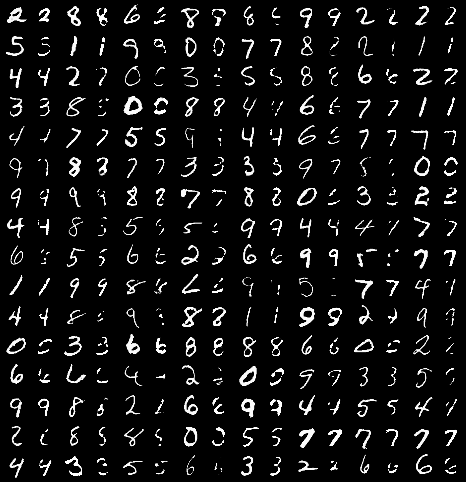 2 2 8 8 6 8 8 6 6 9 9 2 2 2 2
5 5 1 1 9 9 0 0 7 7 8 2 1 1
4 4 2 7 0 3 5 5 8 8 6 6 2 2
3 3 8 0 0 8 8 4 4 6 6 7 7 1 1
4 4 7 7 5 5 9 4 4 6 6 7 7 7 7
9 9 8 8 7 7 3 3 3 3 9 7 5 0 0
9 9 9 9 8 8 7 7 8 8 0 3 3 2 2
4 4 8 5 5 5 9 9 4 4 4 4 7 7
6 5 5 6 6 2 2 6 6 9 9 5 7 7
1 1 9 9 8 8 6 9 5 7 7 4 4
4 4 8 9 8 8 1 1 9 9 2 9 9
0 3 3 6 6 8 8 8 8 6 6 0 2 2
6 6 4 2 0 0 9 9 3 3 5 5
9 9 8 8 2 6 6 9 9 4 4 5 5 4 4
2 8 8 8 0 0 5 5 7 7 7 7 7 7
4 4 3 3 5 5 6 3 3 2 2 6 6 6 6